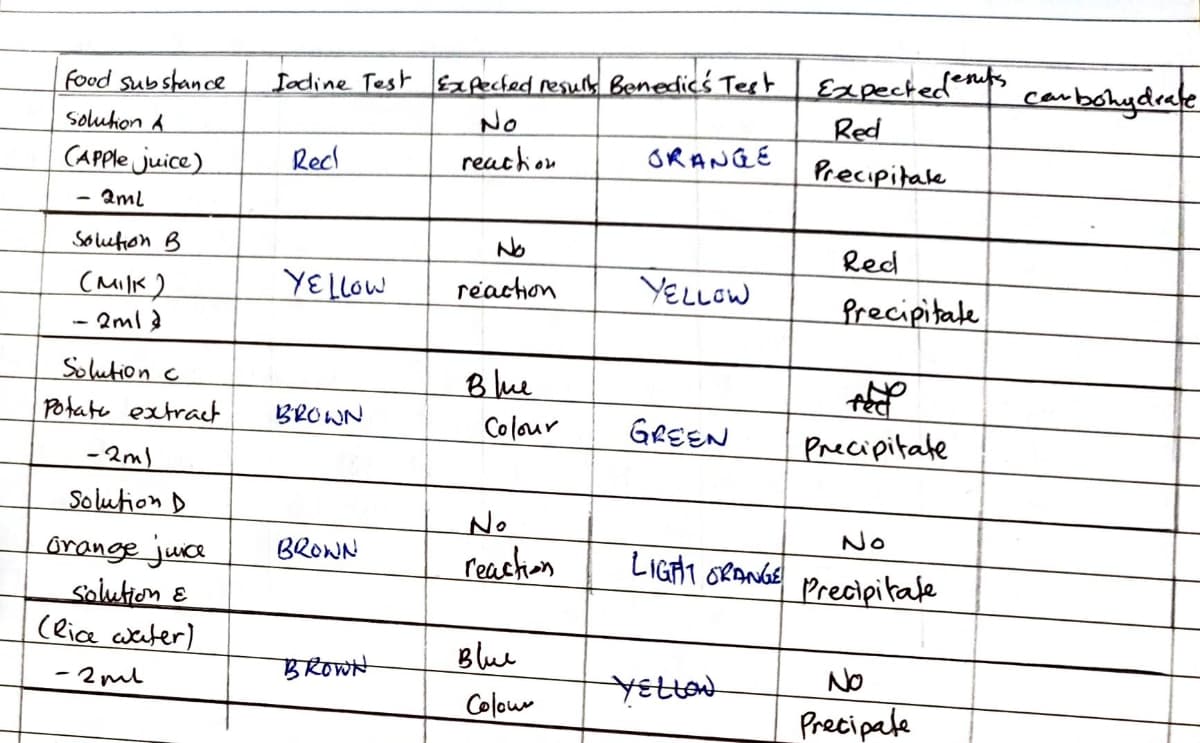 Food substance Iodine Test Expected results Benedic's Test Expected results carbohydrate
Solution A No Red
(Apple juice) Red reaction ORANGE Precipitate
- 2mL
Solution B No Red
(Milk) YELLOW reaction YELLOW Precipitate
- 2ml
Solution C Blue No
Potato extract BROWN Colour GREEN Precipitate
- 2ml
Solution D No No
orange juice BROWN reaction LIGHT ORANGE Precipitate
Solution E
(Rice water) Blue No
- 2mL BROWN Colour YELLOW Precipate